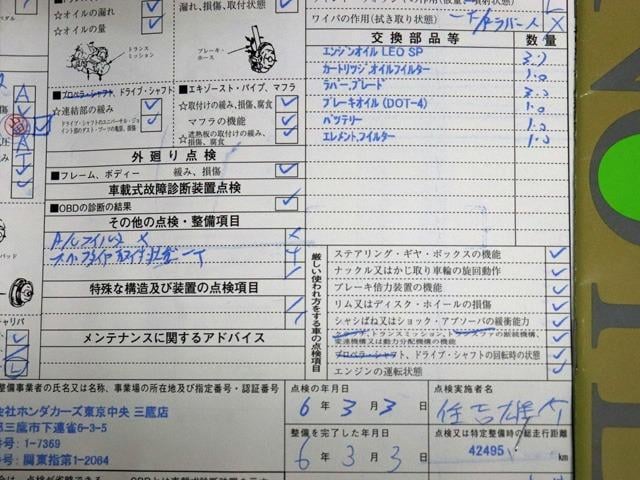 ☆オイルの漏れ
☆オイルの量
トランス
ミッション
漏れ、損傷、取付状態
ブレーキ・
ホース
ワイパの作用(拭き取り状態)
交換部品等 数量
エンジンオイル LEO SP 3.7
カートリッジ,オイルフィルター 1.0
ラバー,ブレード
ブレーキオイル(DOT-4) 1.0
バッテリー 1.0
エレメント,フィルター 1.0
プロペラ・シャフト、ドライブ・シャフト
☆連結部の緩み
ドライブ・シャフトのユニバーサル・ジョ
イント部のダスト・ブーツの亀裂、損傷
エキゾースト・パイプ、マフラ
☆取付けの緩み、損傷、腐食
マフラの機能
☆遮熱板の取付けの緩み、
損傷、腐食
外廻り点検
フレーム、ボディー 緩み、損傷
車載式故障診断装置点検
OBDの診断の結果
その他の点検・整備項目
A/Cフィルタ X
特殊な構造及び装置の点検項目
メンテナンスに関するアドバイス
厳しい使われ方をする車の点検項目
ステアリング・ギヤ・ボックスの機能
ナックル又はかじ取り車輪の旋回動作
ブレーキ倍力装置の機能
リム又はディスク・ホイールの損傷
シャシばね又はショック・アブソーバの緩衝能力
クラッチ、トランスミッション、トランスファの断続機構、
変速機構又は動力分配機構の機能
プロペラ・シャフト、ドライブ・シャフトの回転時の状態
エンジンの運転状態
整備事業者の氏名又は名称、事業場の所在地及び指定番号・認証番号
会社ホンダカーズ東京中央 三鷹店
三鷹市下連雀6-3-5
番号: 1-7369
番号: 関東指第1-2064
点検の年月日
6 年 3 月 3 日
整備を完了した年月日
6 年 3 月 3 日
点検実施者名
点検又は特定整備時の総走行距離
42495 km